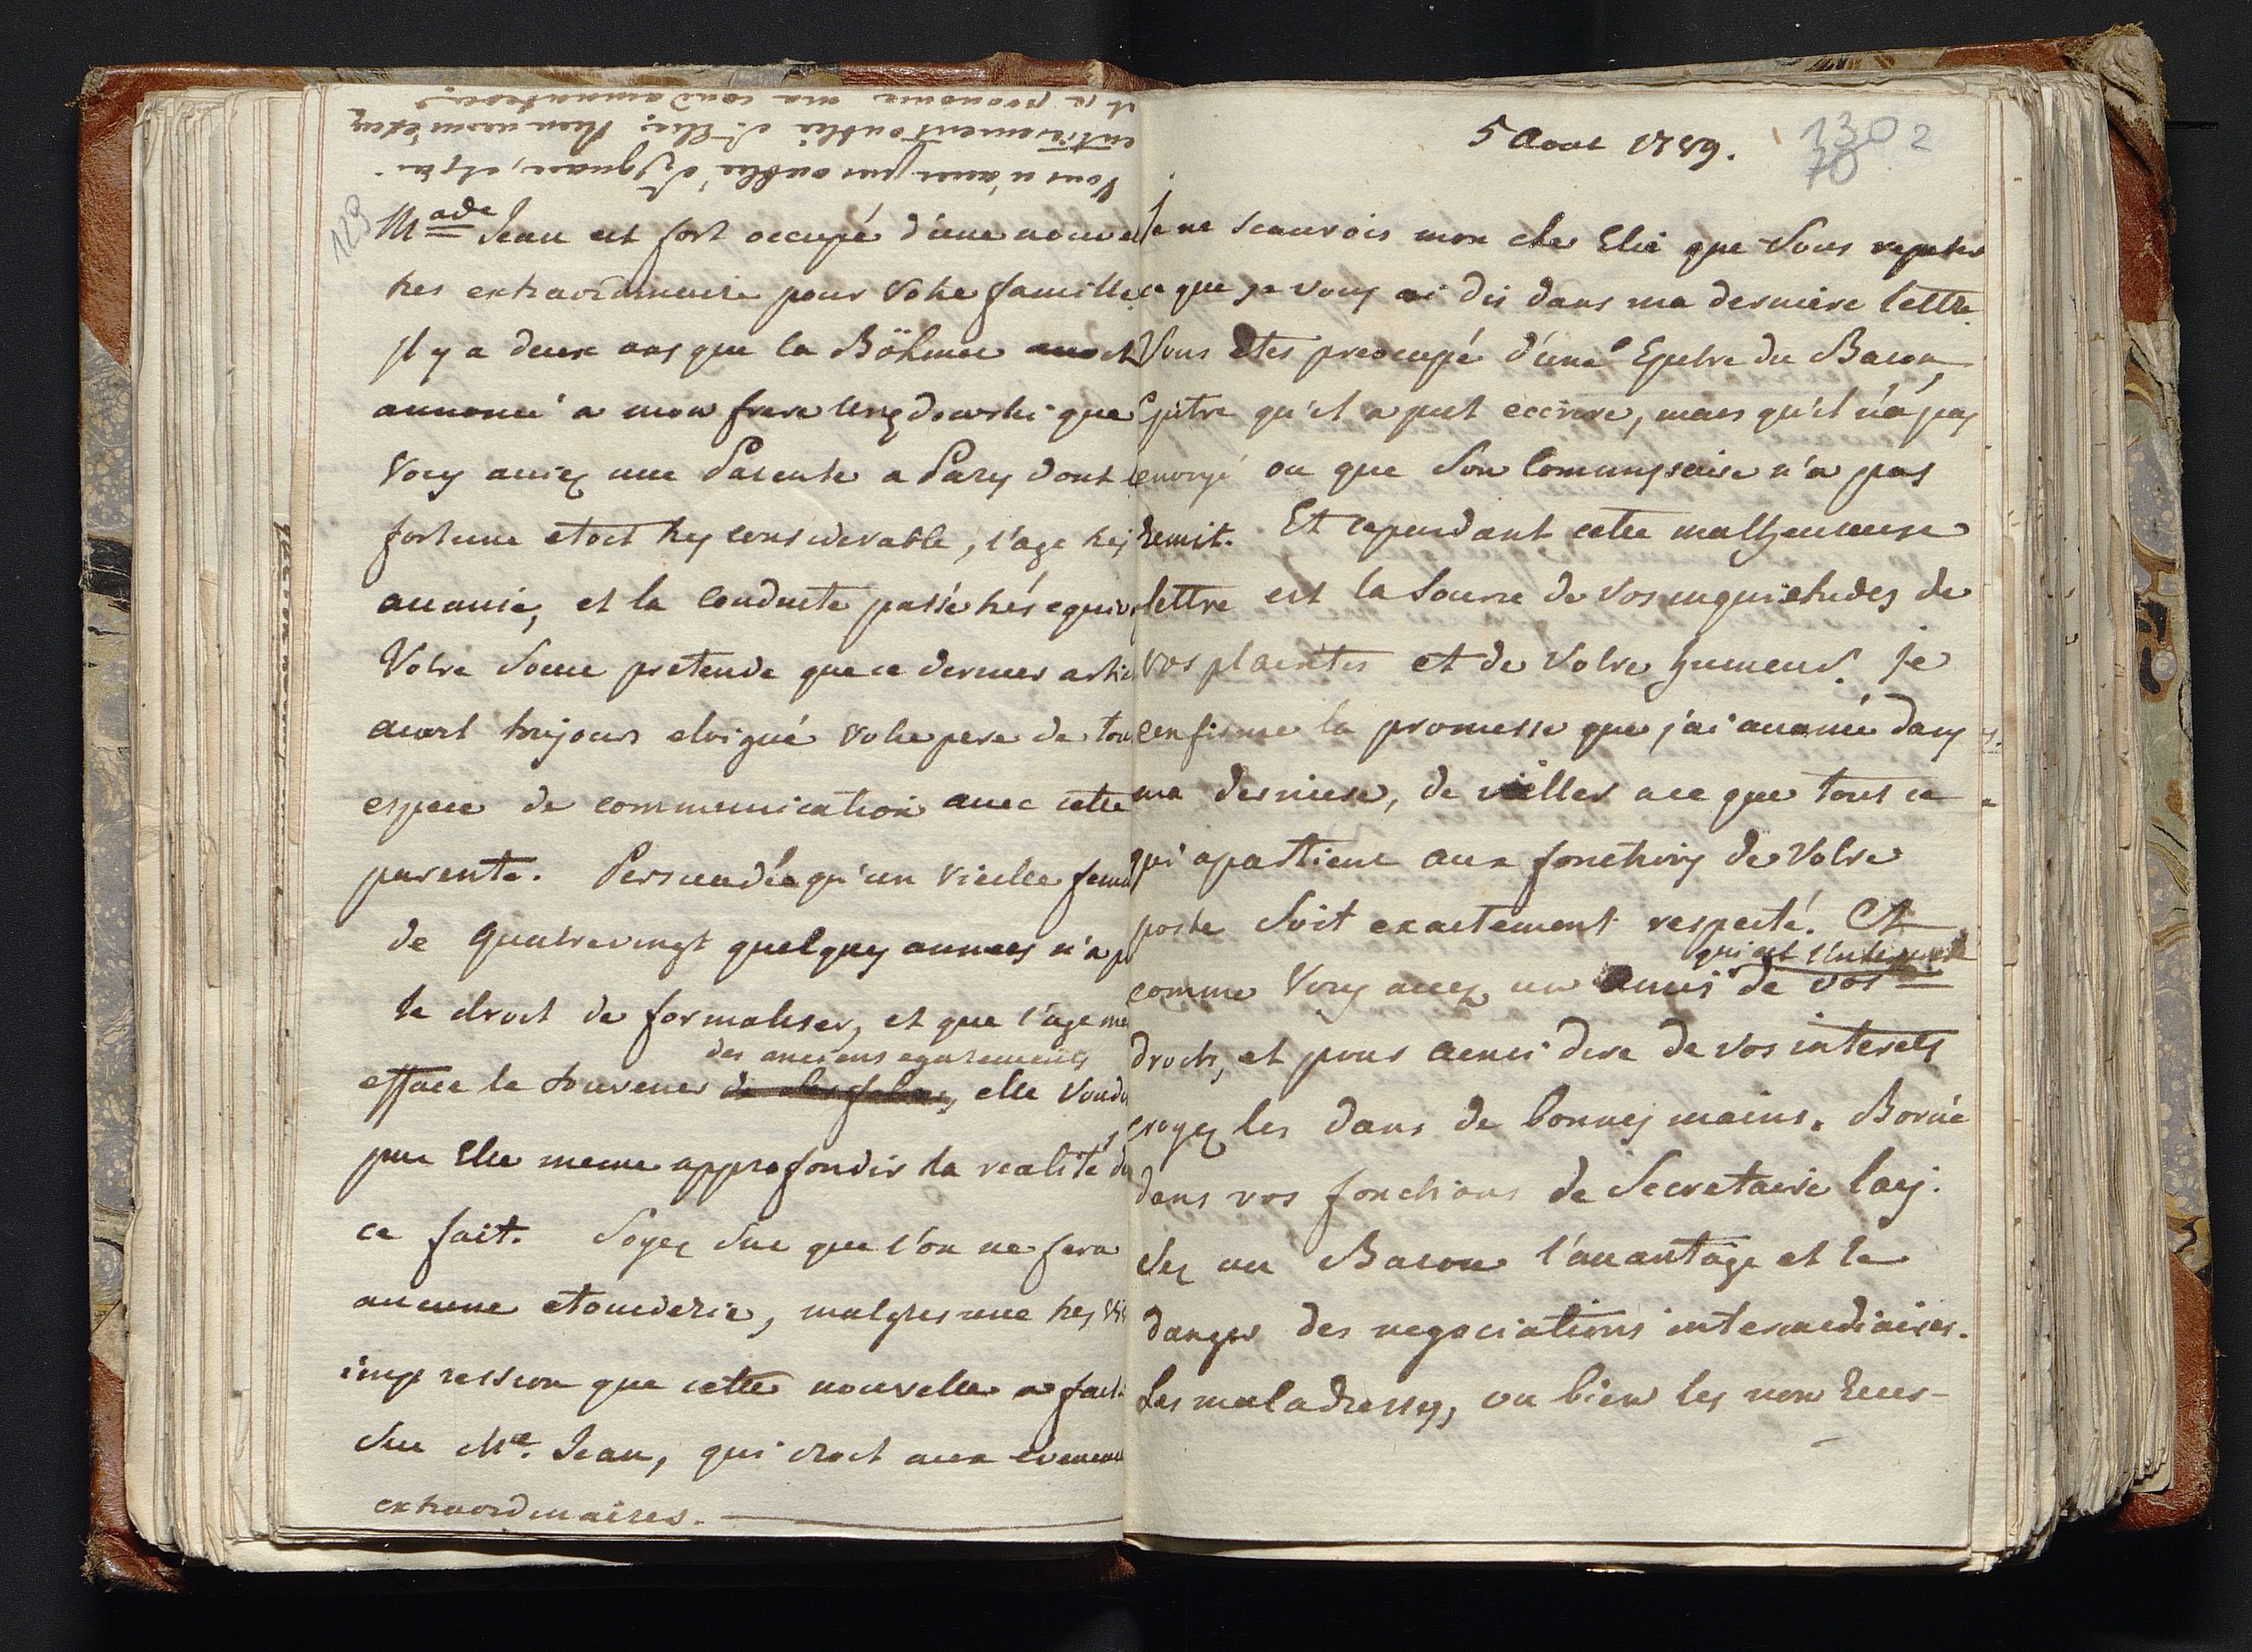 Vous n'avez pas oublié d'Ignace, et j'ai
entierement oublié St. Elie; Mea
et je prononce ma condamnation.
129
Made Jean est fort occupé d'une nouvel
tres extraordinaire pour Votre famille.
Il y a deux ans que la Böhmer
annoncé a mon frere que
Vous aviez une Parente a Parys dont l
fortune etoit tres considerable, l'age tres
avancé, et la conduite passée trés equiv
Votre Soeur pretende que ce dernier artic
avoit toujours eloigné Votre pere de tou
espece de communication avec cette
parente. Persuadée qu'un vieille femm
de quatrevingt quelques années n'a p
le droit de formaliser, et que l'age me
des anciens egarements
efface le souvenir de des folies, elle voud
par Elle meme approfondir la realité d
ce fait. Soyez sur que l'on ne fera
aucune etourderie, malgres une tres vi
impression que cette nouvelle a fait
Sur Me. Jean, qui croit aux evenem
extraordinaires.
5 Aout 1789.
130 2
70
Je ne scaurois mon cher Elie que Vous repeter
ce que je vous ai dis dans ma derniere lettre.
Vous etes preocupé d'une Epitre du Baron,
Epitre qu'il a put eccrire, mais qu'il n'a pas
envoyé ou que Son Comungsaire n'a pas
remit. Et cependant cette malheureuse
lettre est la Source de Vos inquietudes de
vos plaintes et de Votre humeur. Je
confirme la promesse que j'ai avancé dans
ma derniere, de veiller a ce que tout ce
qui apartient aux fonctions de Votre
poste Soit exactement respecté. Et
qui est l'interprete
comme Vous avez un amis de vos
droits, et pour ainsi dire de vos interets
croyez les dans de bonnes mains. Borné
dans vos fonctions de Secretaire lais.
sez au Baron l'avantage et le
danger des negociations intermediaires.
Les maladresses, ou bien les non reus-